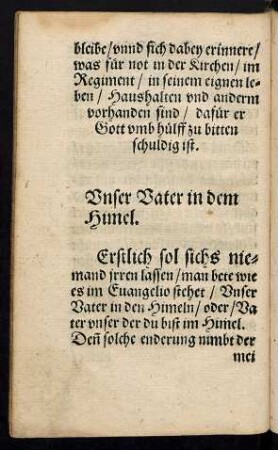 bleibe/vnnd sich dabey erinnere/
was für not in der Kirchen/im
Regiment/in seinem eignen le-
ben/Haushalten vnd anderm
vorhanden sind/dafür er
Gott vmb hülff zu bitten
schuldig ist.
Vnser Vater in dem
Himel.
Erstlich sol sichs nie-
mand jrren lassen/man bete wie
es im Euangelio stehet/Vnser
Vater in den Himeln/oder/Va
ter vnser der du bist im Himel.
Deñ solche enderung nimbt der
mei